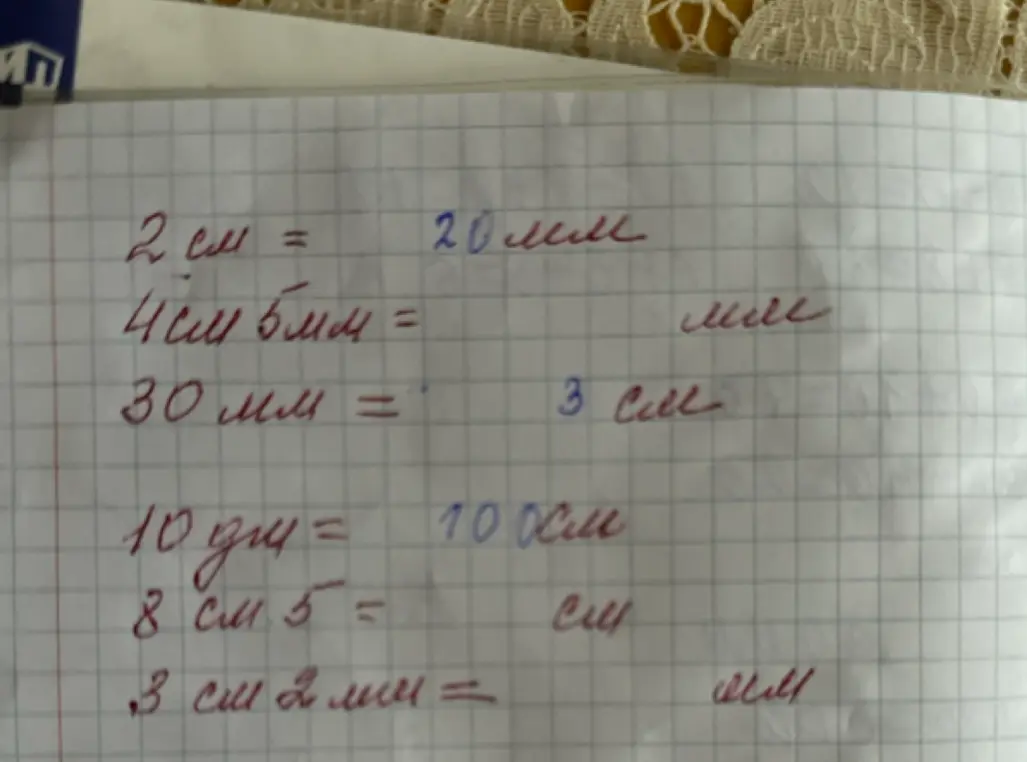 ИП
2 см = 20 мм
4 см 5 мм = мм
30 мм = 3 см
10 дм = 100 см
8 см 5 = см
3 см 2 мм = мм